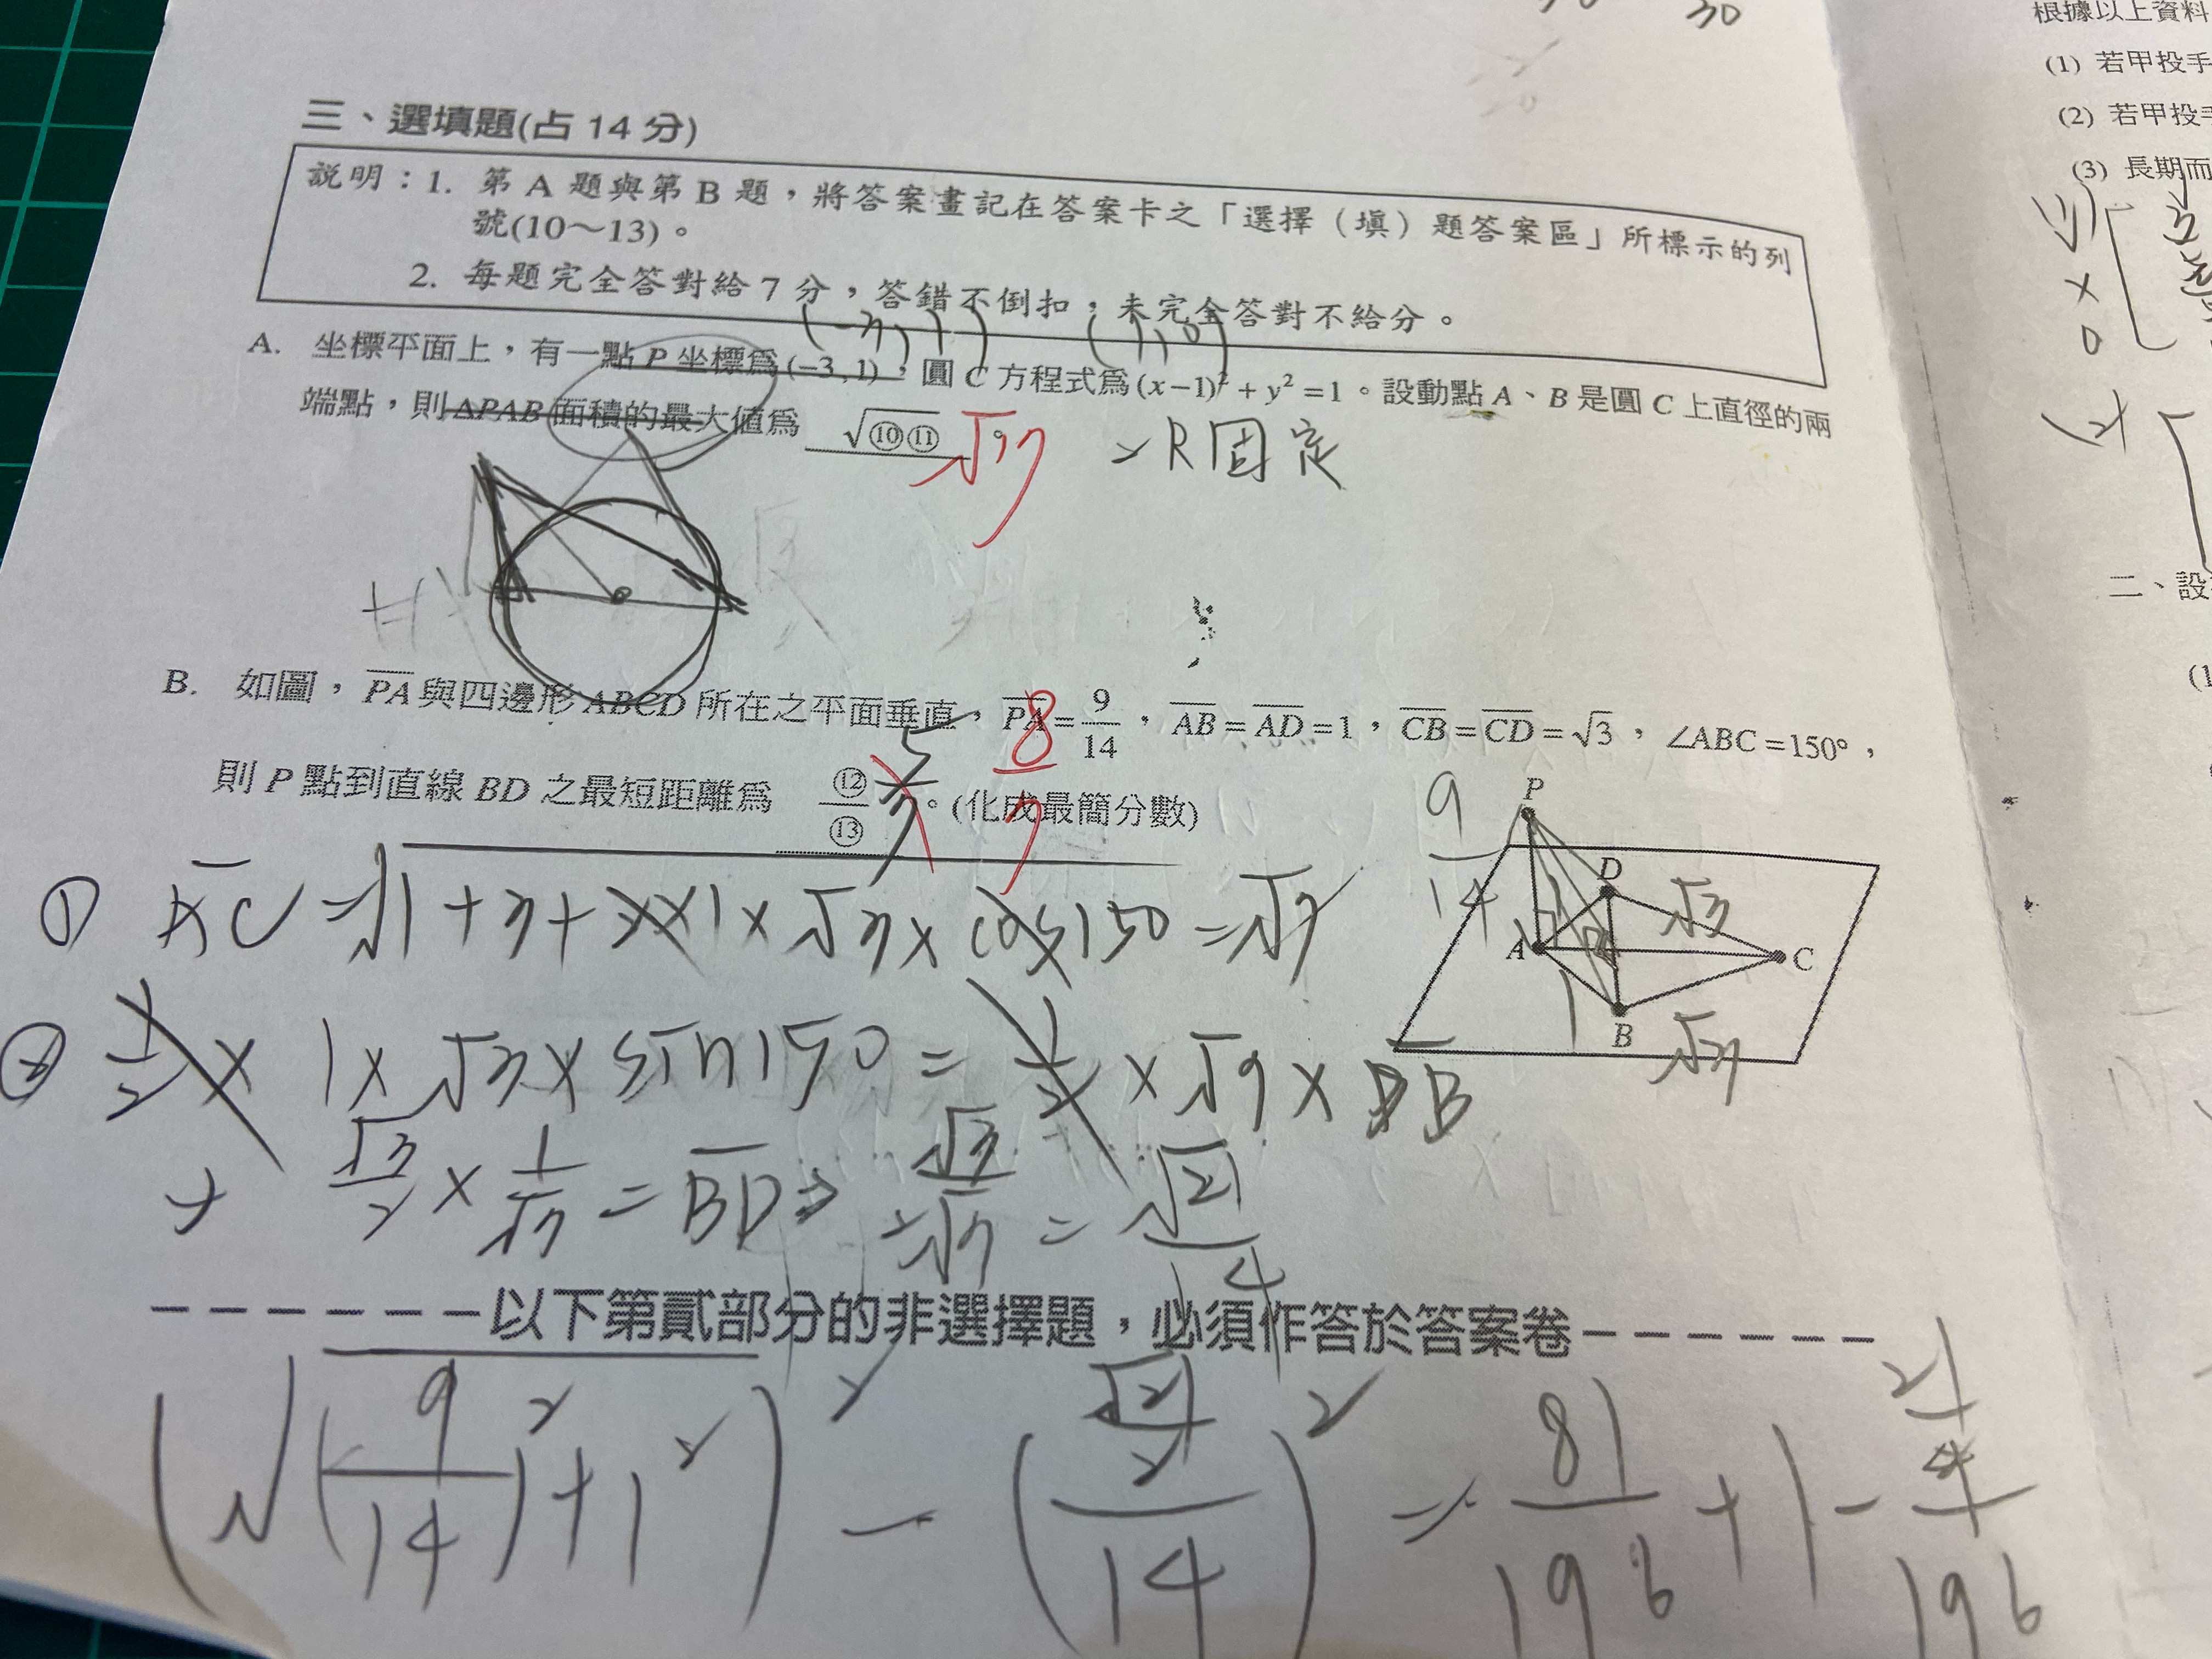 30
三、選填題(占 14 分)
說明：1. 第 A 題與第 B 題，將答案畫記在答案卡之「選擇（填）題答案區」所標示的列
號(10～13)。
2. 每題完全答對給 7 分，答錯不倒扣，未完全答對不給分。
(-3, 1) (1, 0)
A. 坐標平面上，有一點 P 坐標為 (−3, 1)，圓 C 方程式為 (x−1)² + y² = 1。設動點 A、B 是圓 C 上直徑的兩
端點，則 ΔPAB 面積的最大值為 √⑩⑪。 √17 2R固定
B. 如圖，PA 與四邊形 ABCD 所在之平面垂直，PA = 9/14，AB = AD = 1，CB = CD = √3，∠ABC = 150°，
則 P 點到直線 BD 之最短距離為 ⑫/⑬。(化成最簡分數)
5/7 8/7
P
9/14
D
√3
A
C
1
B
√3
① AC = √1+3+2×1×√3×cos150 = √7
② 1/2 × 1×√3×sin150 = 1/2 × √7 ×
√3/2 × 1/√7 = BD ⇒ √3/2√7 = √21/14
------以下第貳部分的非選擇題，必須作答於答案卷------
(√(9/14)²+1²)² − (√21/14)² = 81/196 + 1 − 21/196
根據以上資料
(1) 若甲投手
(2) 若甲投手
(3) 長期而
二、設
(1